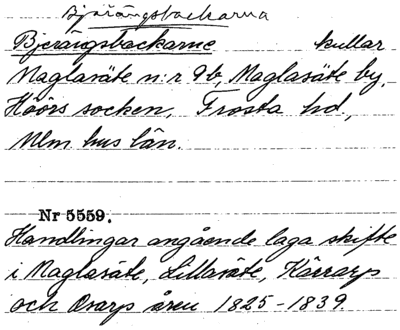 Bjärängsbackarna
Bjerängsbackarne kullar
Maglasäte n:r 9b, Maglasäte by,
Höörs socken, Frosta hd,
Mlm hus län.
Nr 5559.
Handlingar angående laga skifte
i Maglasäte, Lillasäte, Kärrarp
och Osarp åren 1825-1839